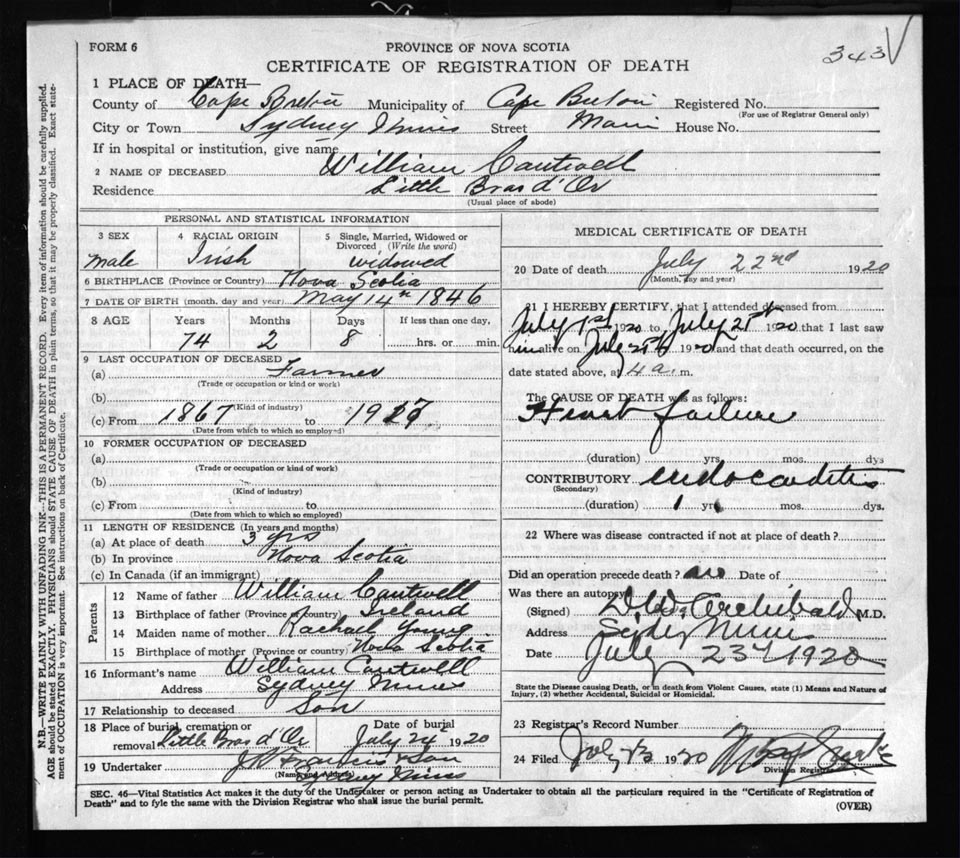 FORM 6
PROVINCE OF NOVA SCOTIA
343
CERTIFICATE OF REGISTRATION OF DEATH
1 PLACE OF DEATH—
County of Cape Breton Municipality of Cape Breton Registered No.
(For use of Registrar General only)
City or Town Sydney Mines Street Main House No.
If in hospital or institution, give name
2 NAME OF DECEASED William Cantwell
Residence Little Bras d'Or
(Usual place of abode)
PERSONAL AND STATISTICAL INFORMATION
3 SEX 4 RACIAL ORIGIN 5 Single, Married, Widowed or Divorced (Write the word)
male Irish widowed
6 BIRTHPLACE (Province or Country) Nova Scotia
7 DATE OF BIRTH (month, day and year) May 14th 1846
8 AGE Years Months Days If less than one day,
74 2 8 hrs. or min.
9 LAST OCCUPATION OF DECEASED
(a) Farmer
(Trade or occupation or kind or work)
(b)
(Kind of industry)
(c) From 1867 to
(Date from which to which so employed)
10 FORMER OCCUPATION OF DECEASED
(a)
(Trade or occupation or kind of work)
(b)
(Kind of industry)
(c) From to
(Date from which to which so employed)
11 LENGTH OF RESIDENCE (In years and months)
(a) At place of death 3 yrs
(b) In province Nova Scotia
(c) In Canada (if an immigrant)
Parents
12 Name of father William Cantwell
13 Birthplace of father (Province or country) Ireland
14 Maiden name of mother Rachael Young
15 Birthplace of mother (Province or country) Nova Scotia
16 Informant's name William Cantwell
Address Sydney Mines
17 Relationship to deceased Son
18 Place of burial, cremation or removal Little Bras d'Or Date of burial July 24 1920
19 Undertaker & Son
(Name and Address) Sydney Mines
MEDICAL CERTIFICATE OF DEATH
20 Date of death July 22nd 1920
(Month, day and year)
21 I HEREBY CERTIFY, that I attended deceased from
July 1st 1920 to July 21st 1920 that I last saw
him alive on July 1920 and that death occurred, on the
date stated above, at 4 a. m.
The CAUSE OF DEATH was as follows:
Heart failure
(duration) yrs. mos. dys
CONTRIBUTORY endocarditis
(Secondary)
(duration) 1 yrs. mos. dys.
22 Where was disease contracted if not at place of death?
Did an operation precede death? no Date of
Was there an autopsy
(Signed) Archibald M.D.
Address Sydney Mines
Date July 23 1920
State the Disease causing Death, or in death from Violent Causes, state (1) Means and Nature of
Injury, (2) whether Accidental, Suicidal or Homicidal.
23 Registrar's Record Number
24 Filed July 1920
Division Registrar
SEC. 46—Vital Statistics Act makes it the duty of the Undertaker or person acting as Undertaker to obtain all the particulars required in the "Certificate of Registration of
Death" and to fyle the same with the Division Registrar who shall issue the burial permit.
(OVER)
N.B.—WRITE PLAINLY WITH UNFADING INK—THIS IS A PERMANENT RECORD. Every item of information should be carefully supplied.
AGE should be stated EXACTLY. PHYSICIANS should STATE CAUSE OF DEATH in plain terms, so that it may be properly classified. Exact state-
ment of OCCUPATION is very important. See instructions on back of Certificate.